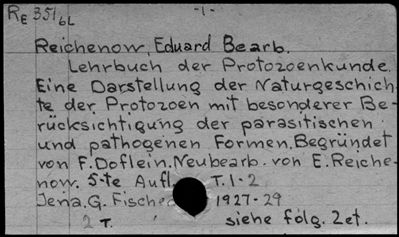 RE 351/6L -1-
Reichenow, Eduard Bearb.
Lehrbuch der Protozoenkunde.
Eine Darstellung der Naturgeschich-
te der Protozoen mit besonderer Be-
rücksichtigung der parasitischen
und pathogenen Formen. Begründet
von F. Doflein. Neubearb. von E. Reiche-
now. 5-te Aufl. T. 1-2
Jena, G. Fische 1927-29
2 T. siehe folg. Zet.